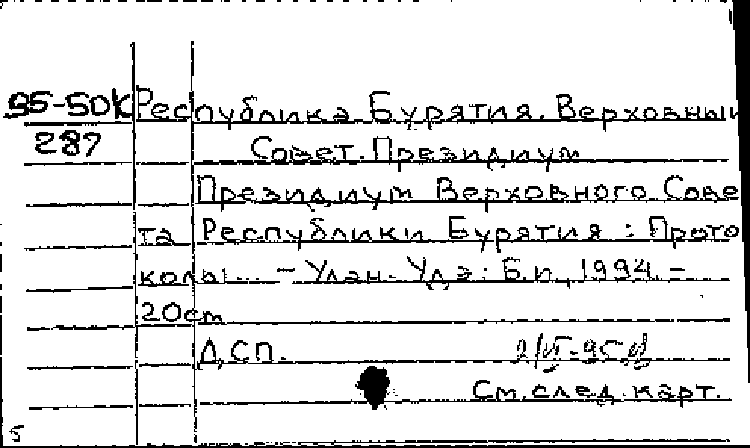 95-50К Республика Бурятия. Верховный
287 Совет. Президиум
Президиум Верховного Сове
та Республики Бурятия : Прото
колы... - Улан-Удэ : Б.и., 1994. -
20см
Д,СП.
См. след. карт.
5